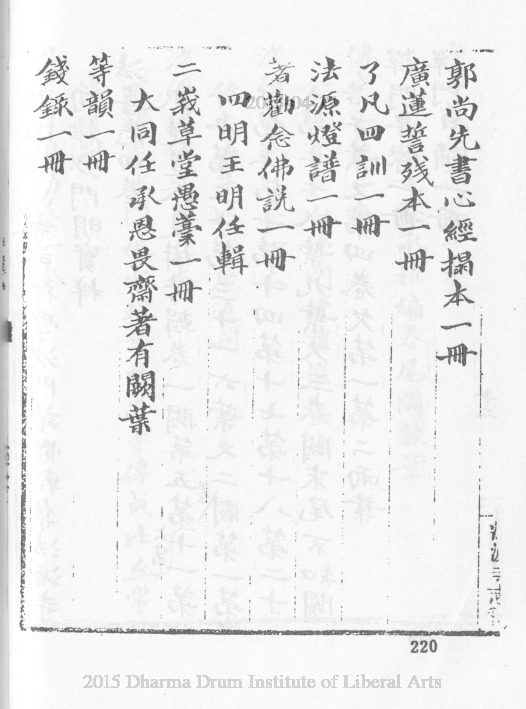 郭尚先書心經搨本一冊
廣蓮誓残本一冊
了凡四訓一冊
法源燈譜一冊
著勸念佛説一冊
四明王明任輯
二峩草堂愚藁一冊
大同任承恩畏齋著有闕葉
等韻一冊
錢録一冊
220
2015 Dharma Drum Institute of Liberal Arts